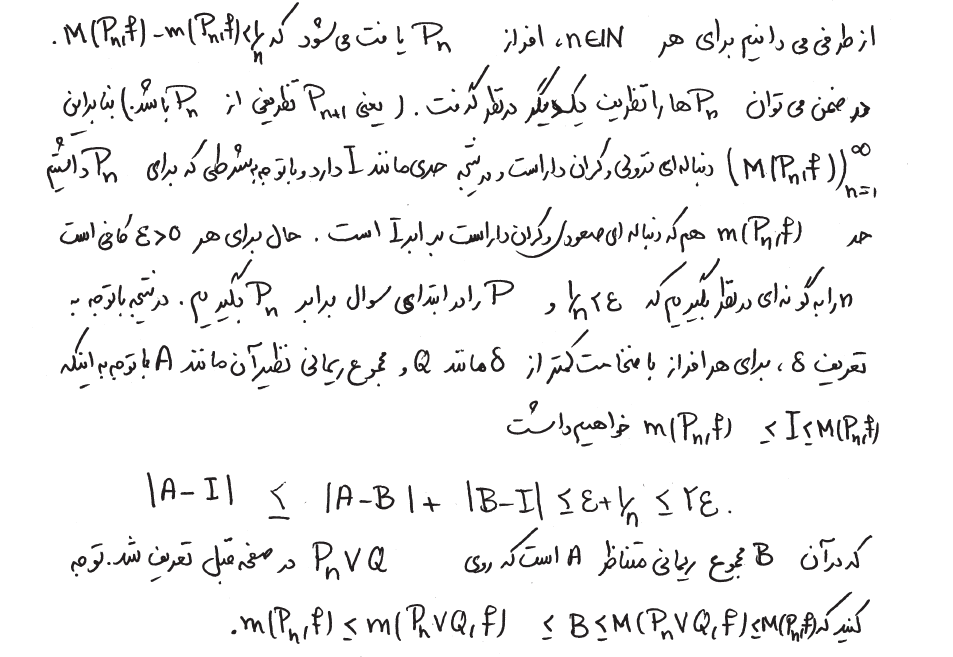 از طرفی می دانیم برای هر n∈ℕ، افراز P_n یافت می شود که M(P_n,f) - m(P_n,f) < 1/n .
در ضمن می توان P_n ها را تظریف یکدیگر در نظر گرفت . ( یعنی P_{n+1} تظریفی از P_n باشد.) بنابراین
(M(P_n,f))_{n=1}^∞ دنباله ای نزولی و کران دار است و در نتیجه حدی مانند I دارد و با توجه به شرطی که برای P_n داشتیم
حد m(P_n,f) هم که دنباله ای صعودی و کران دار است برابر I است . حال برای هر ε>0 کافی است
n را به گونه ای در نظر بگیریم که 1/n < ε و P را در ابتدای سوال برابر P_n بگیریم . در نتیجه با توجه به
تعریف δ ، برای هر افراز با ضخامت کمتر از δ مانند Q و مجموع ریمانی نظیر آن مانند A با توجه به اینکه
m(P_n,f) ≤ I ≤ M(P_n,f) خواهیم داشت
|A-I| ≤ |A-B| + |B-I| ≤ ε+1/n ≤ ۲ε .
که در آن B مجموع ریمانی متناظر A است که روی P_n∨Q در صفحه قبل تعریف شد. توجه
کنید که m(P_n,f) ≤ m(P_n∨Q,f) ≤ B ≤ M(P_n∨Q,f) ≤ M(P_n,f) .